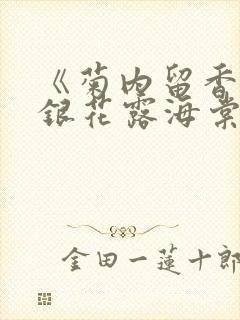 《菊内留香
銀花露海棠
金田一蓮十郎